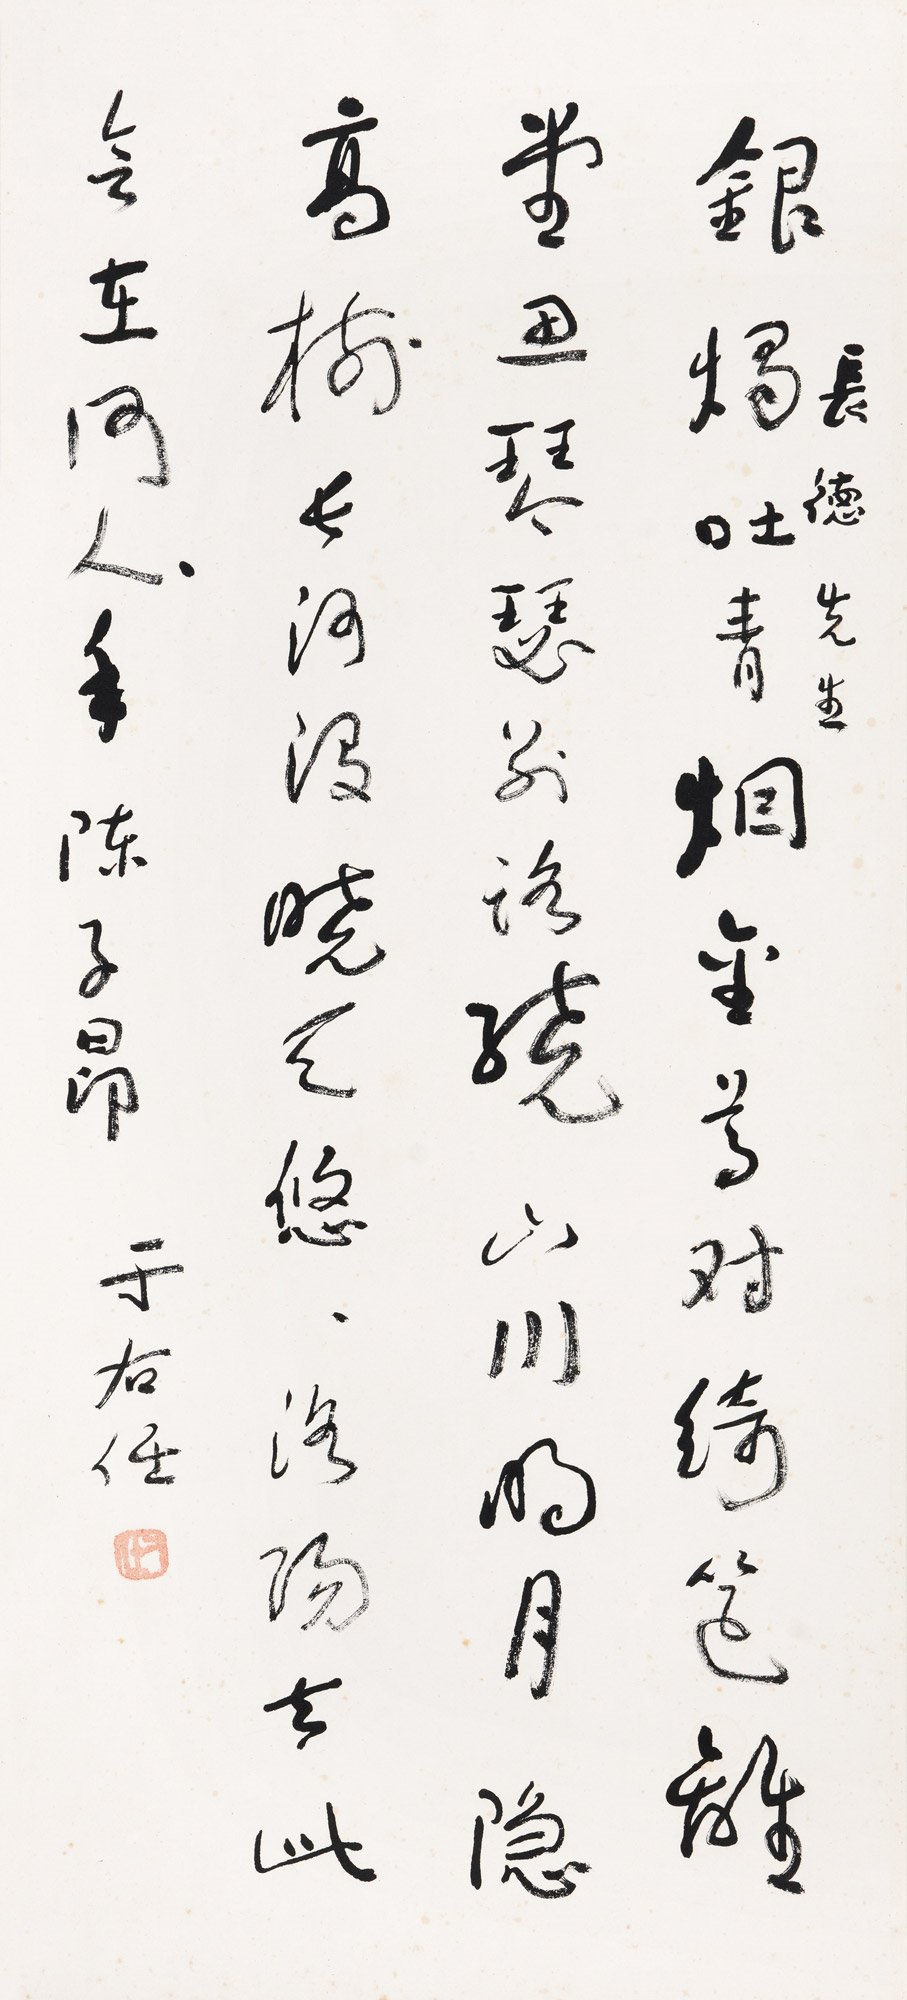 長德先生
銀燭吐青烟金尊对綺筵離
堂思琴瑟别路繞山川明月隐
高樹長河没曉天悠、洛陽去此
會在何人年 陳子昂
于右任